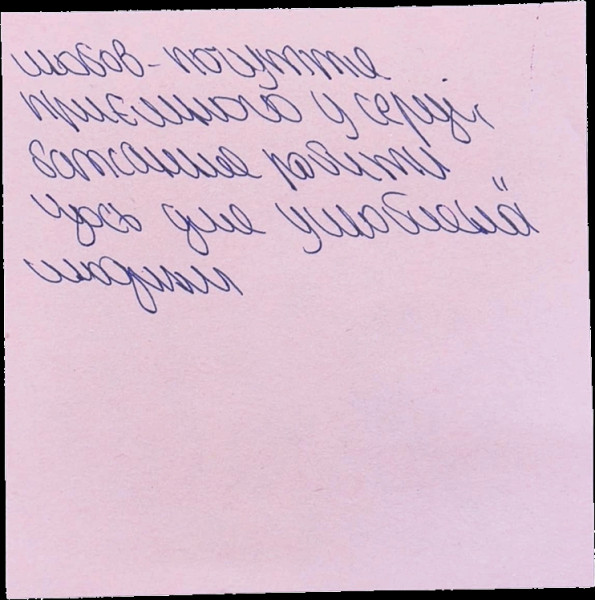 любов-почуття
приємного у серці,
бажання робити
щось для улюбленої
людини